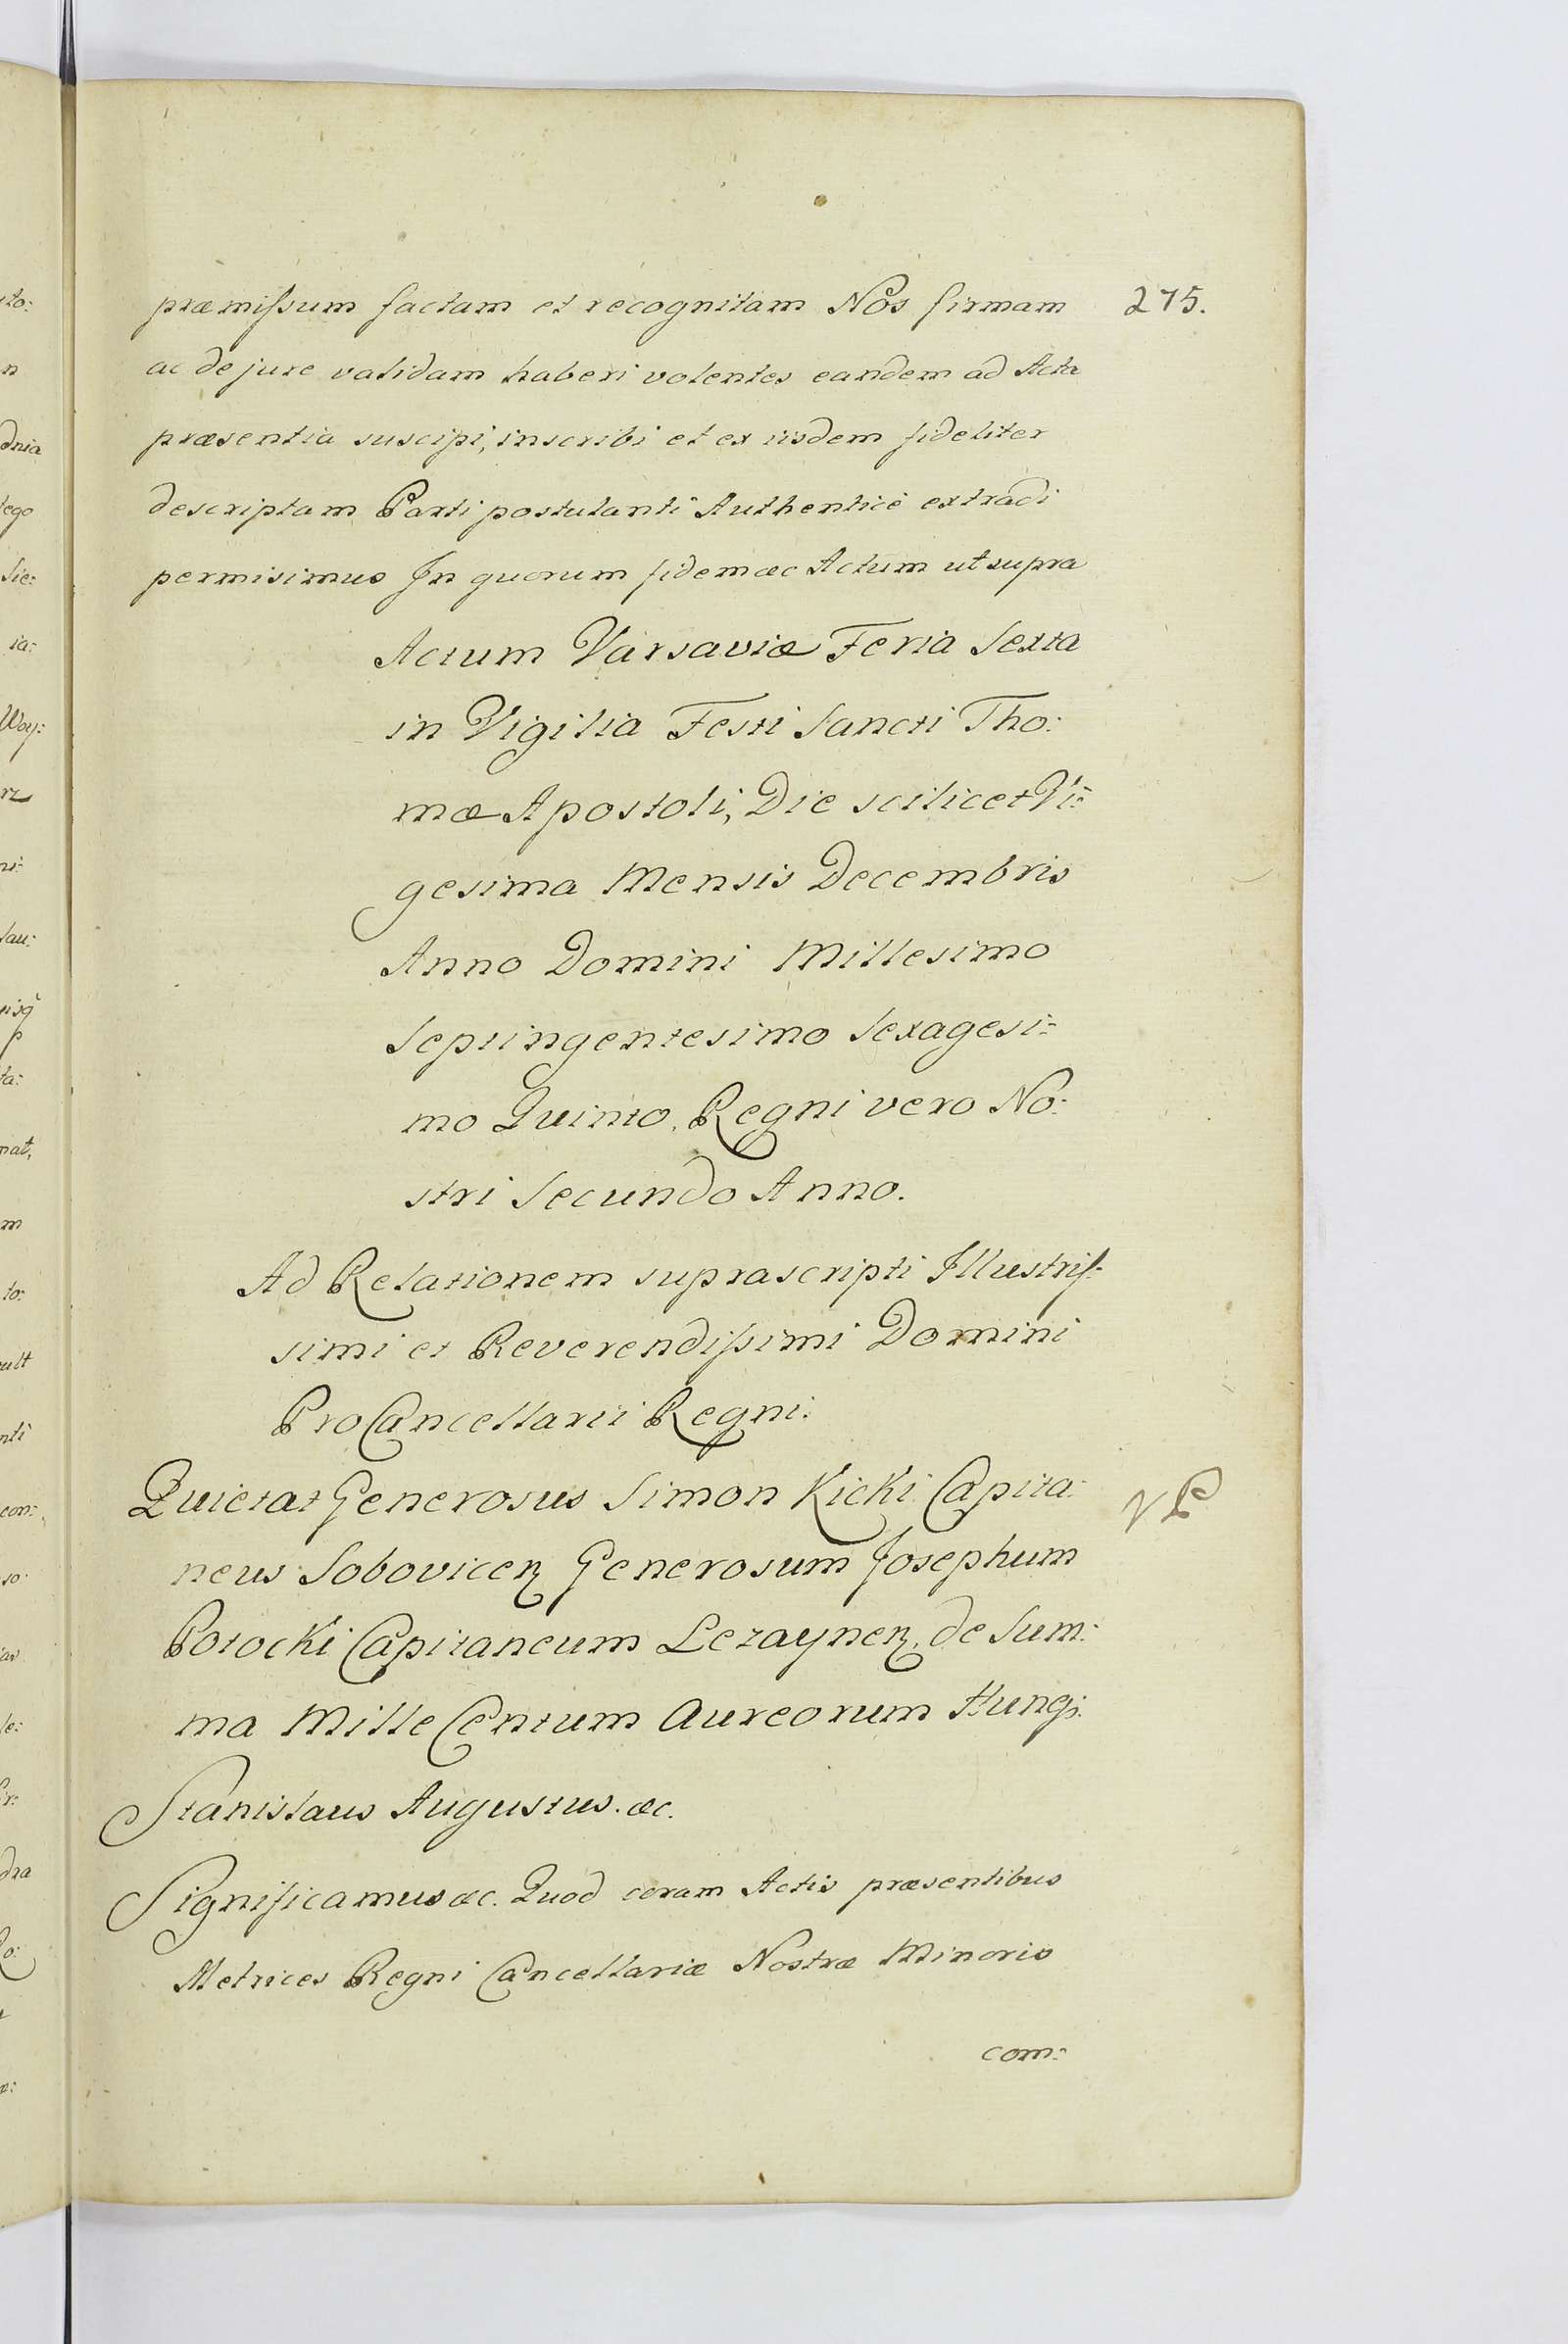 præmiſsum factam et recognitam Nos firmam 275.
ac de jure validam haberi volentes eandem ad Acta
præsentia suscipi, inscribi et ex iisdem fideliter
descriptam Parti postulanti Authenticè extradi
permisimus Jn quorum fidem æc Actum ut supra
Actum Varsaviæ Feria Sexta
in Vigilia Festi Sancti Tho:
mæ Apostoli, Die scilicet Vi:
gesima Mensis Decembris
Anno Domini Millesimo
Septingentesimo Sexagesi:
mo Quinto, Regni vero No:
stri Secundo Anno.
Ad Relationem suprascripti Jllustriſ:
simi et Reverendiſsimi Domini
ProCancellarii Regni.
Quietat Generosus Simon Kicki Capita:
neus Sobovicen Generosum Josephum
Potocki Capitaneum Lezaynen. de Sum:
ma Mille Centum Aureorum Hung:
Stanislaus Augustus. æc.
Significamus æc. Quod coram Actis præsentibus
Metrices Regni Cancellariæ Nostræ Minoris
com: